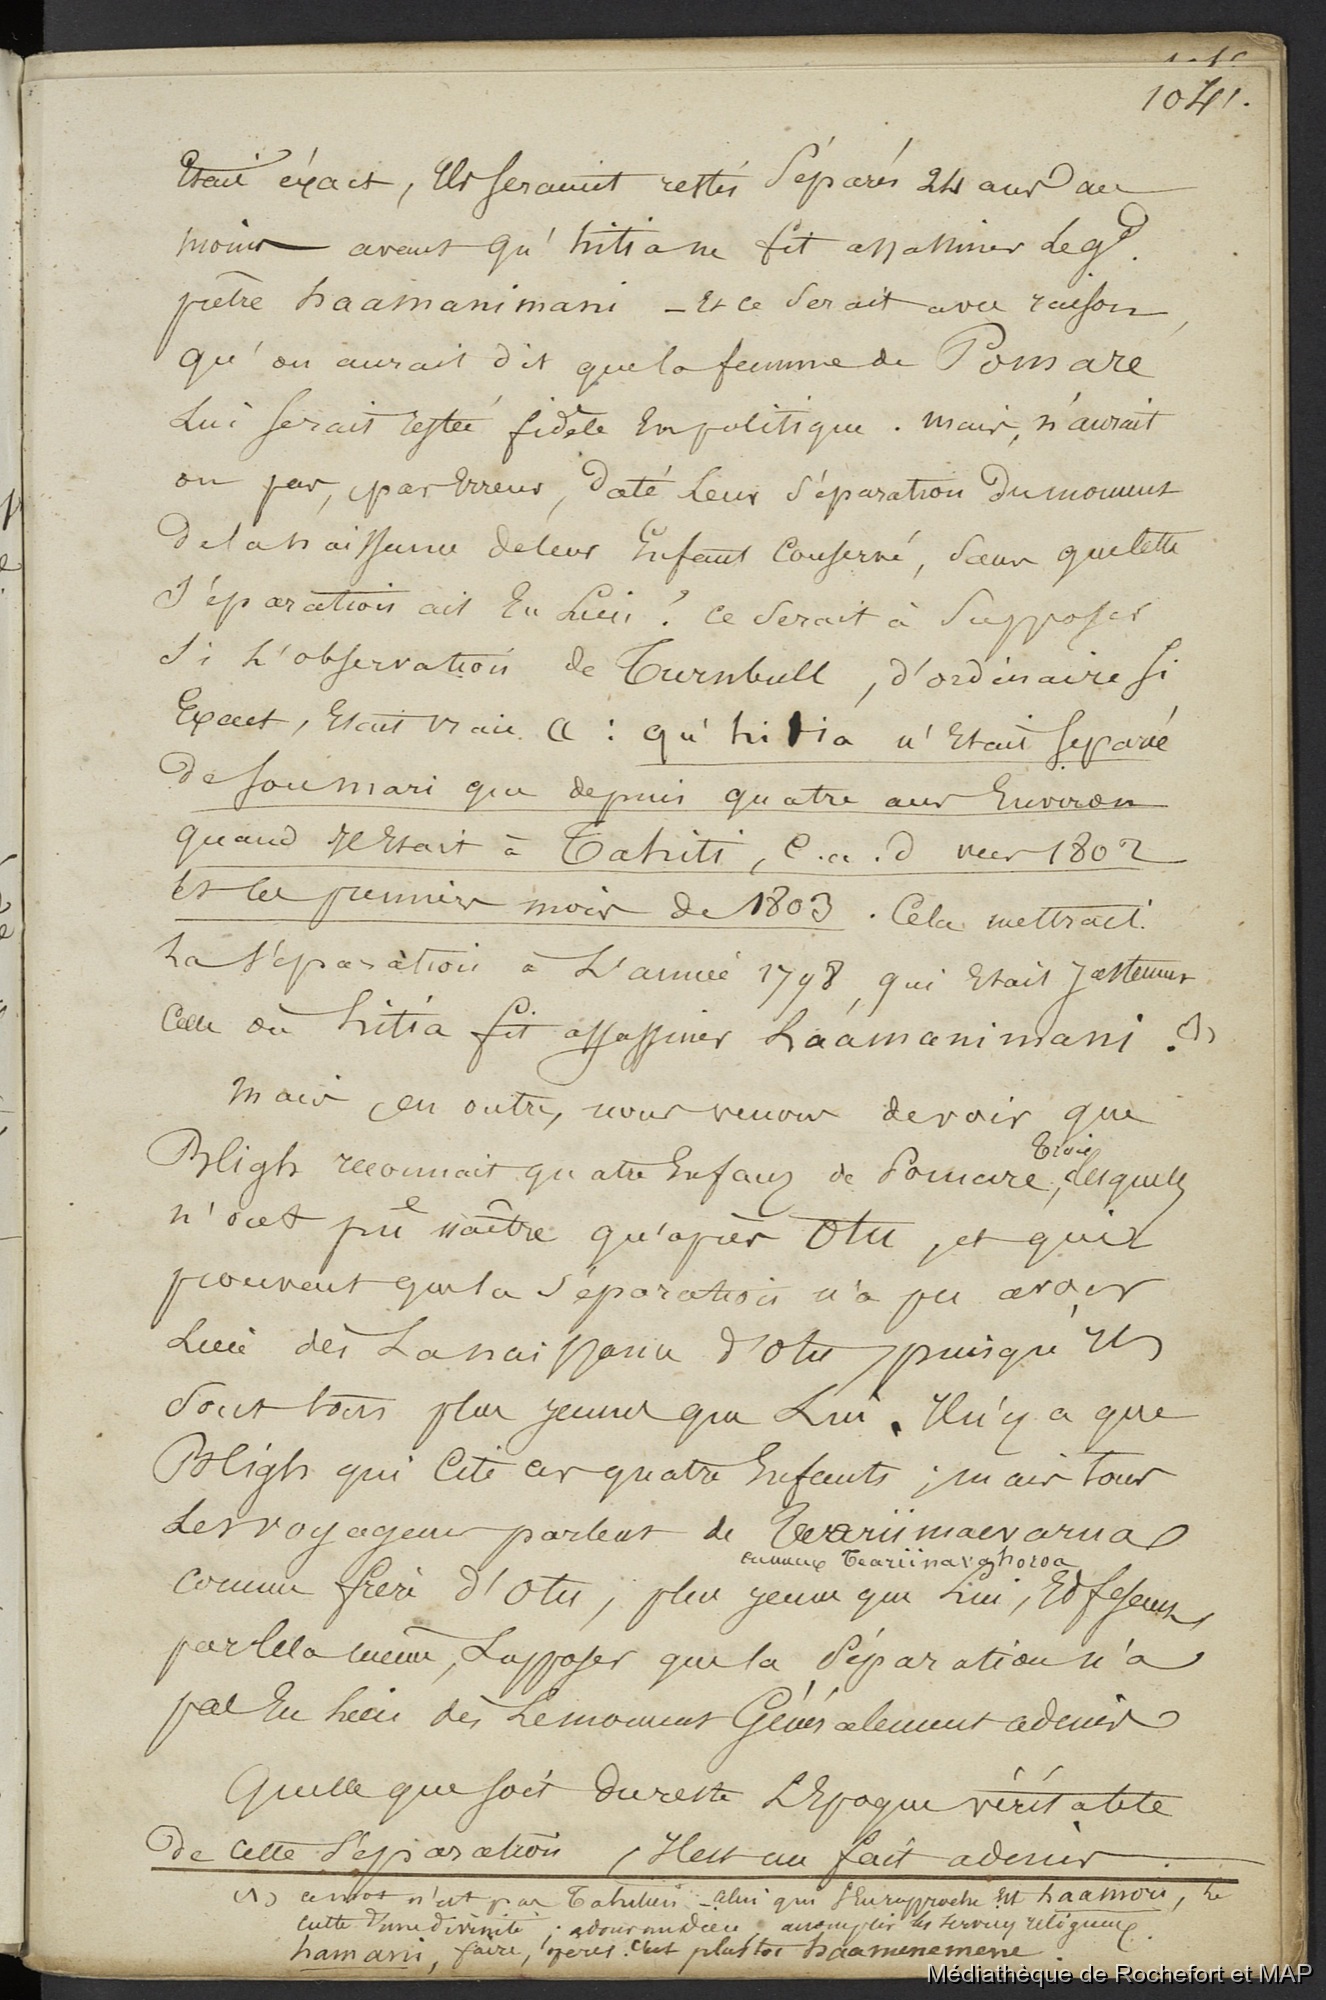 1041.
Etait éxact, Ils seraient restés séparés 24 ans au
moins avant qu'hitia ne fit assassiner le gd.
prêtre haamanimani – Et ce serait avec raison,
qu'on aurait dit que la femme de Pomare
lui serait restée fidèle en politique. mais, n'aurait
on pas, par Erreur, daté leur séparation du moment
de la naissance de leur Enfant Conservé, sans que cette
séparation ait Eu lieu? ce serait à supposer
si l'observation de Turnbull, d'ordinaire si
Exact, Etait vraie : qu'hitia n'Etait séparée
de son mari que depuis quatre ans Environ
quand Il Etait à Tahiti, C.a.d vers 1802
Et les premiers mois de 1803. Cela mettrait
la séparation à L'année 1798, qui Etait Justement
Celle où hitia fit assassiner haamanimani. (1)
mais, en outre, nous venons de voir que
Bligh reconnait quatre Enfans de Pomare, desquels
Trois
n'ont pu naître qu'après Otu, et qui
prouvent que la séparation n'a pu avoir
Lieu dès La naissance d'Otu, puisqu'Ils
sont tous plus jeunes que Lui. Il n'y a que
Bligh qui Cite ces quatre Enfants; mais tous
Les voyageurs parlent de Tearii
comme frère d'Otu, plus jeune que Lui, Et fesant,
par Cela même, supposer que la séparation n'a
pas Eu lieu dès Le moment Généralement admis
Quelle que soit du reste L'Epoque véritable
de cette séparation, Il est un fait admis.
(1) ce mot n'est pas Tahitien – celui qui s'En rapproche Est haamori, le
culte d'une divinité; adorer un dieu; accomplir les services religieux.
hamani, faire, opérer. C'est plutôt haamenemene.
Médiathèque de Rochefort et MAP